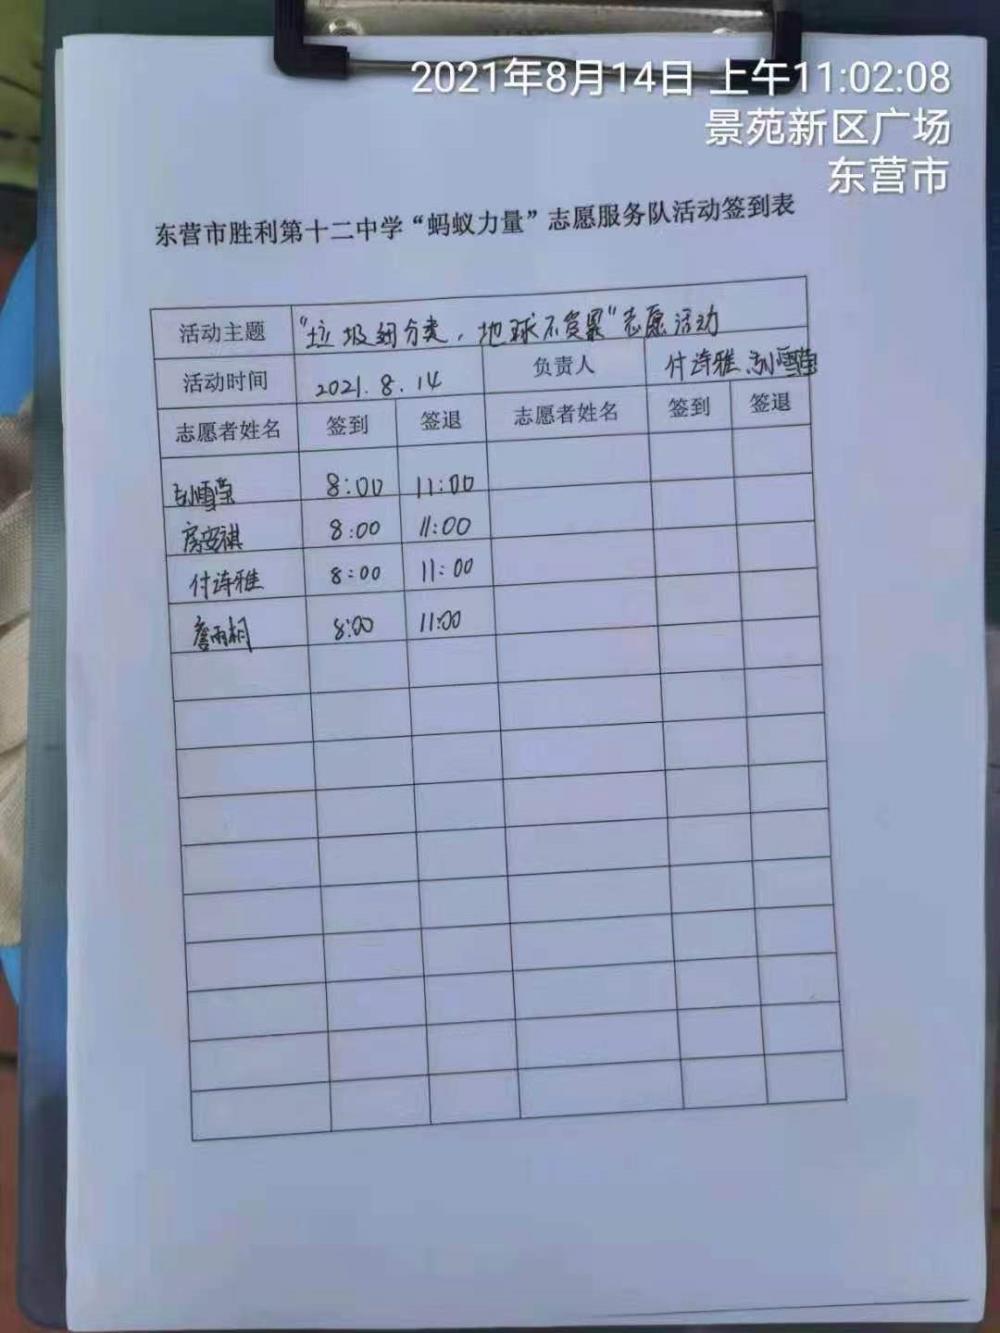 2021年8月14日 上午11:02:08
景苑新区广场
东营市
东营市胜利第十二中学“蚂蚁力量”志愿服务队活动签到表
活动主题 “垃圾细分类，地球不负累”志愿活动
活动时间 2021.8.14 负责人 付诗雅 雪莹
志愿者姓名 签到 签退 志愿者姓名 签到 签退
雪莹 8:00 11:00
房安祺 8:00 11:00
付诗雅 8:00 11:00
詹雨桐 8:00 11:00